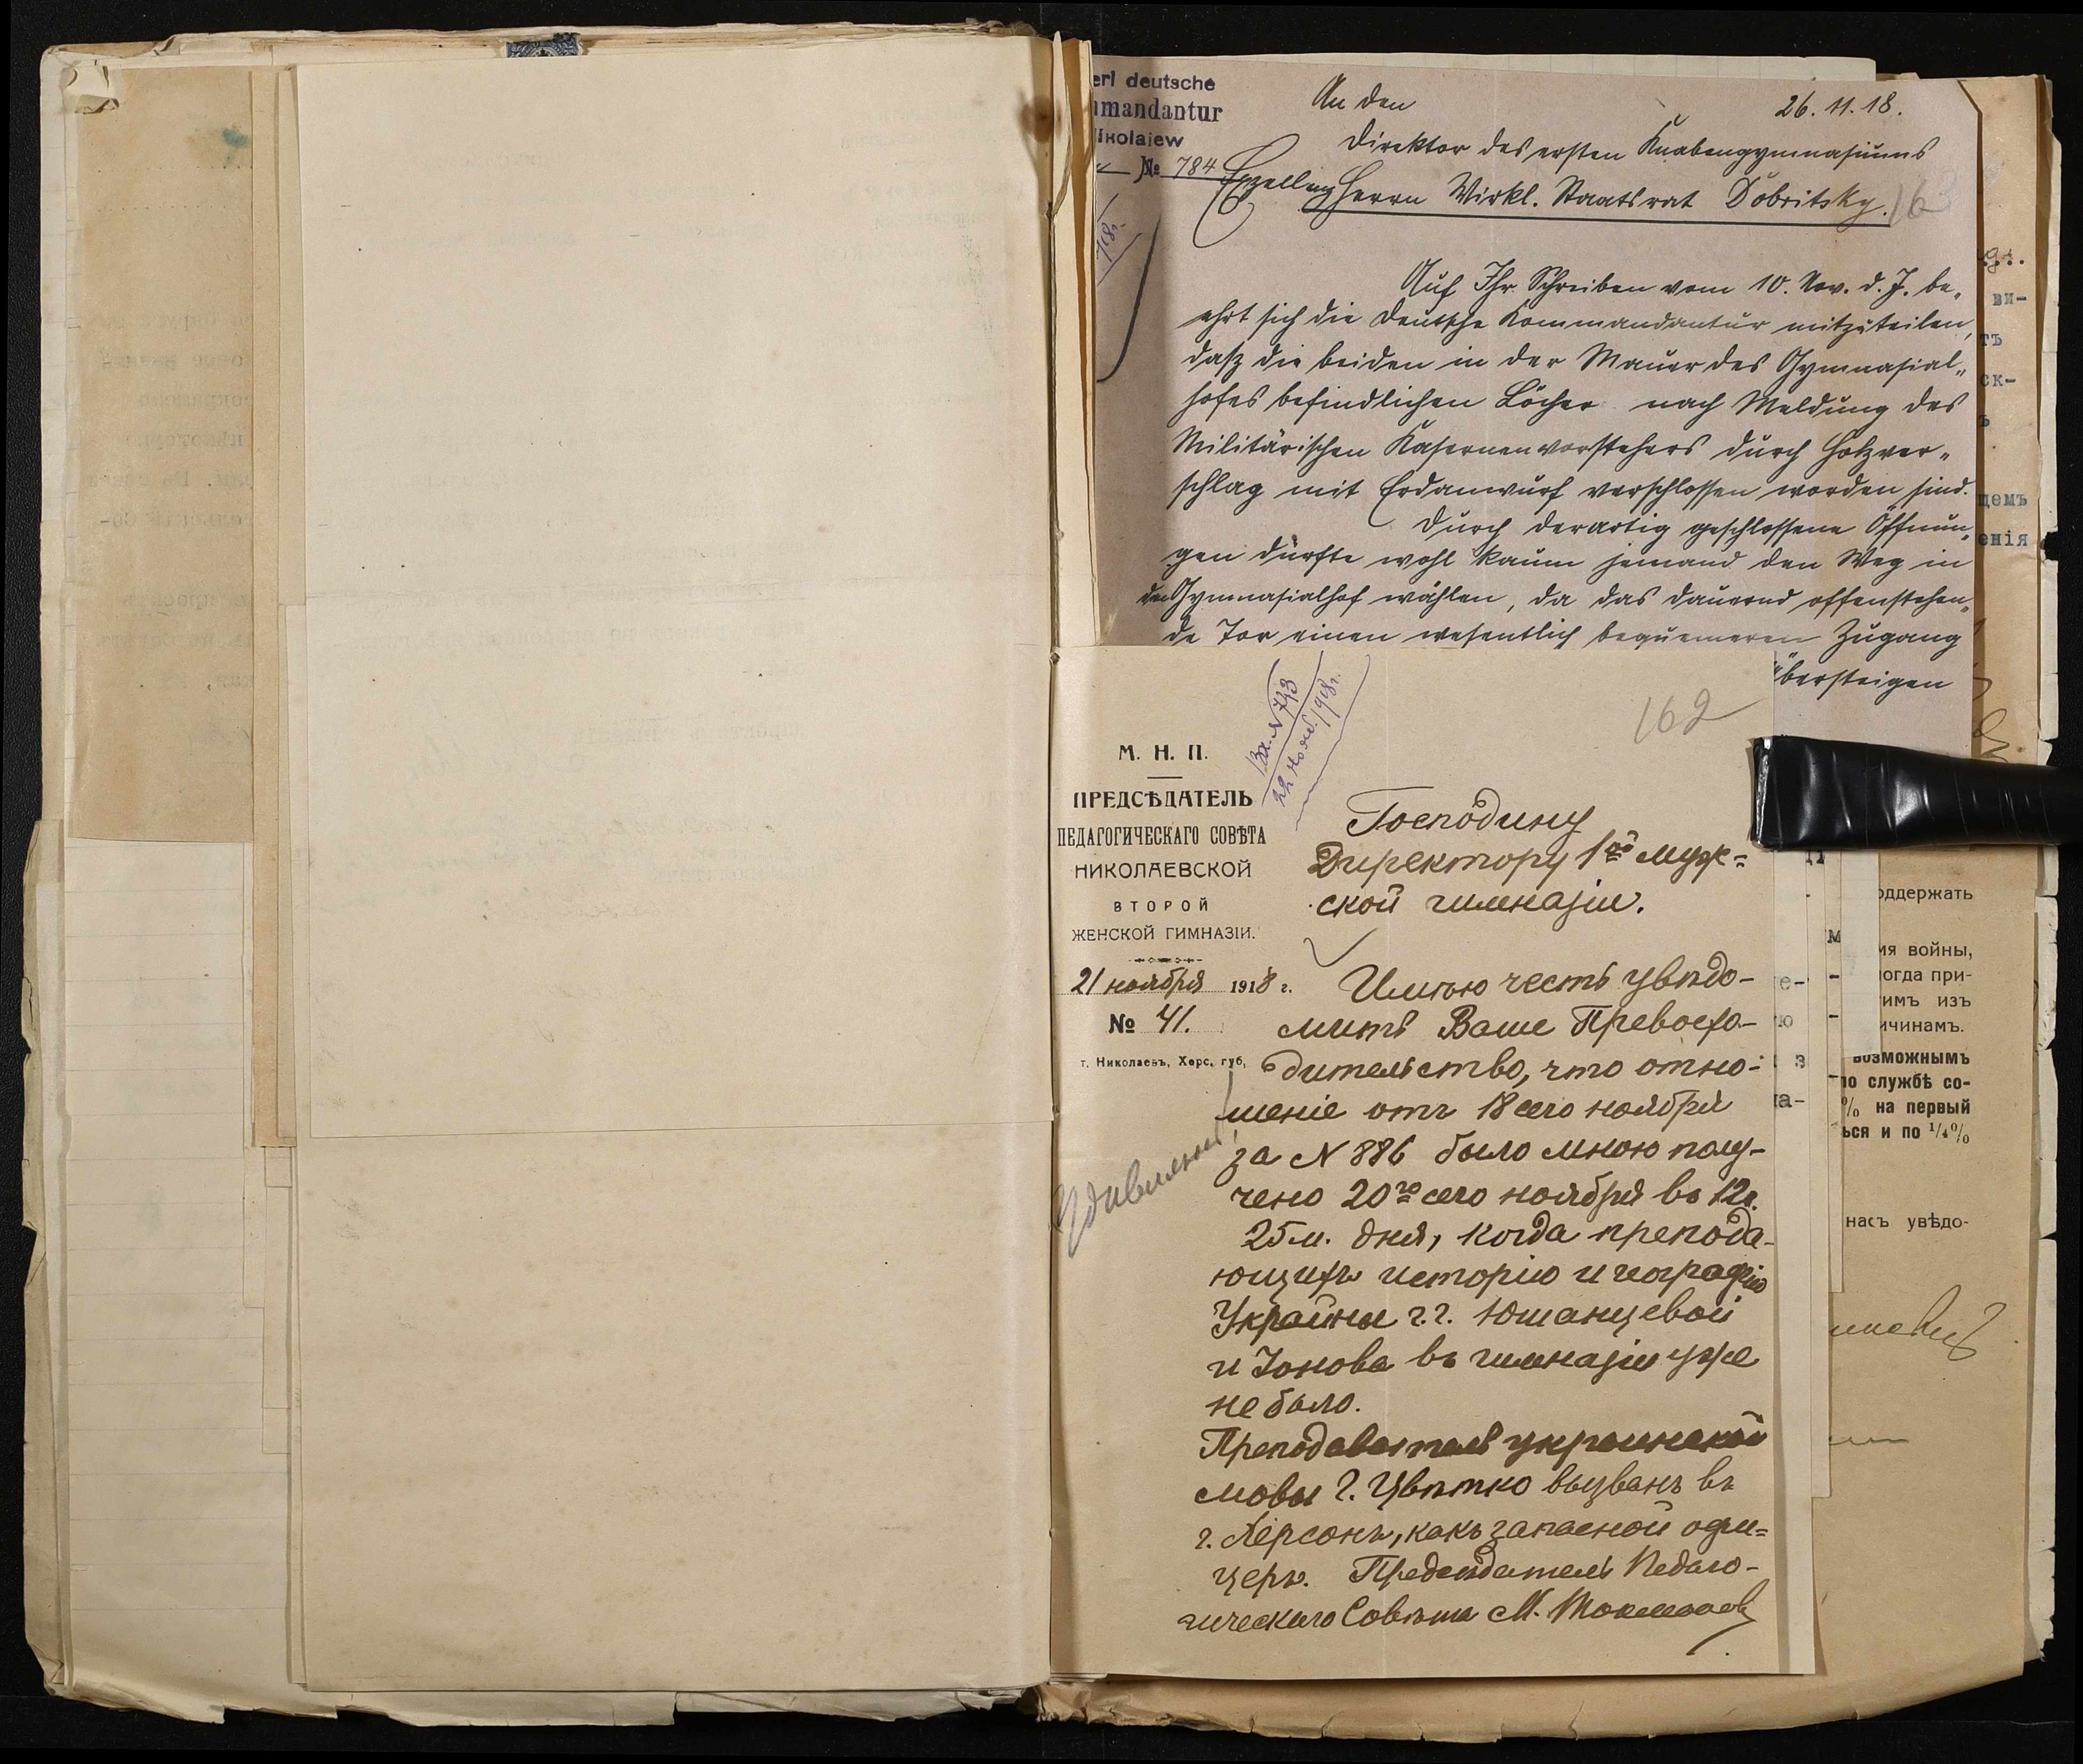 erl deutsche
mmandantur
ikolajew
№ 784
An den
26.11.18.
Direktor des ersten Knabengymnasiums
Exzellenz Herrn Wirkl. Staatsrat Dobritsky.
163
Auf Ihr Schreiben vom 10. Nov. d. J. be„
ehrt sich die Deutsche Kommandantur mitzuteilen,
dasz die beiden in der Mauer des Gymnasial„
hofes befindlichen Löcher nach Meldung des
Militärischen Kasernenvorstehers durch Holzver„
schlag mit Erdanwurf verschlossen worden sind.
Durch derartig geschlossene Öffnun„
gen dürfte wohl kaum jemand den Weg in
den Gymnasialhof wählen, da das dauernd offenstehen„
de Tor einen wesentlich bequemeren Zugang
übersteigen
162
Вх. N 773
22 нояб. 1918г.
М. Н. П.
ПРЕДСѢДАТЕЛЬ
ПЕДАГОГИЧЕСКАГО СОВѢТА
НИКОЛАЕВСКОЙ
ВТОРОЙ
ЖЕНСКОЙ ГИМНАЗІИ.
21 ноября 1918 г.
№ 41.
г. Николаевъ, Херс. губ.
Господину
Директору 1ой муж=
ской гимназіи.
Имѣю честь увѣдо-
мить Ваше Превосхо-
дительство, что отно-
шеніе отъ 18 сего ноября
за N 886 было мною полу-
чено 20го сего ноября въ 12ч.
25 м. дня, когда препода-
ющихъ исторію и географію
Украйны г.г. Юшанцевой
и Іонова въ гимназіи уже
не было.
Преподаватель украинской
мовы г. Цвѣтко вызванъ въ
г. Херсонъ, какъ запасной офи=
церъ. Предсѣдатель Педаго-
гическаго Совѣта М.
ви-
тъ
ск-
ъ
щемъ
енія
оддержать
мя войны,
огда при-
имъ изъ
ичинамъ.
возможнымъ
по службѣ со-
% на первый
ься и по ¼%
насъ увѣдо-